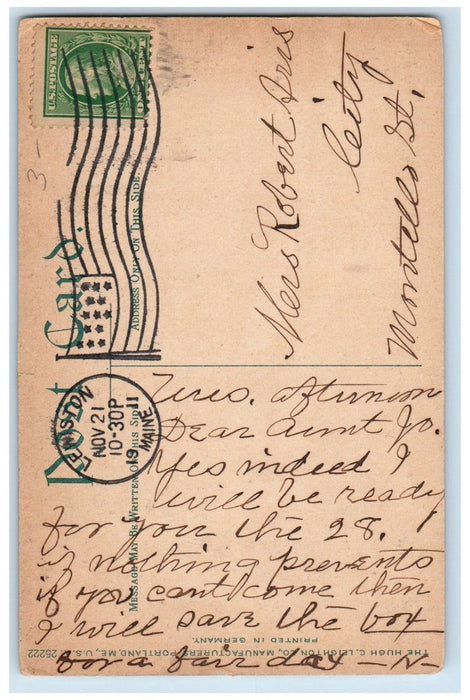 U.S. POSTAGE
ONE CENT
3-
Post Card.
ADDRESS ONLY ON THIS SIDE.
MESSAGE MAY BE WRITTEN ON THIS SIDE
LEWISTON
NOV 21
10-30P
1911
MAINE
Mrs Robert Aris
City
Montello St,
Tues. afternoon
Dear Aunt Jo.
Yes indeed I
will be ready
for you the 28.
if nothing prevents
if you cant come then
I will save the box
for a fair day - N-
THE HUGH C. LEIGHTON CO., MANUFACTURERS, PORTLAND, ME., U.S.A.
PRINTED IN GERMANY.
25222